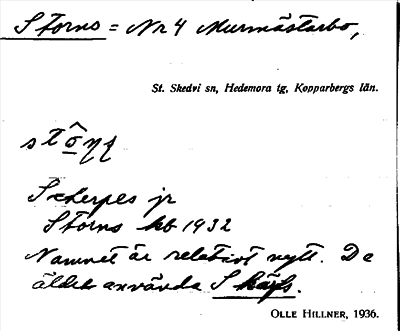 Storns = Nr 4 Murmästarbo,
St. Skedvi sn, Hedemora tg, Kopparbergs län.
Scherpes jr
Storns kb 1932
Namnet är relativt nytt. De
äldre använda Skärfs.
OLLE HILLNER, 1936.